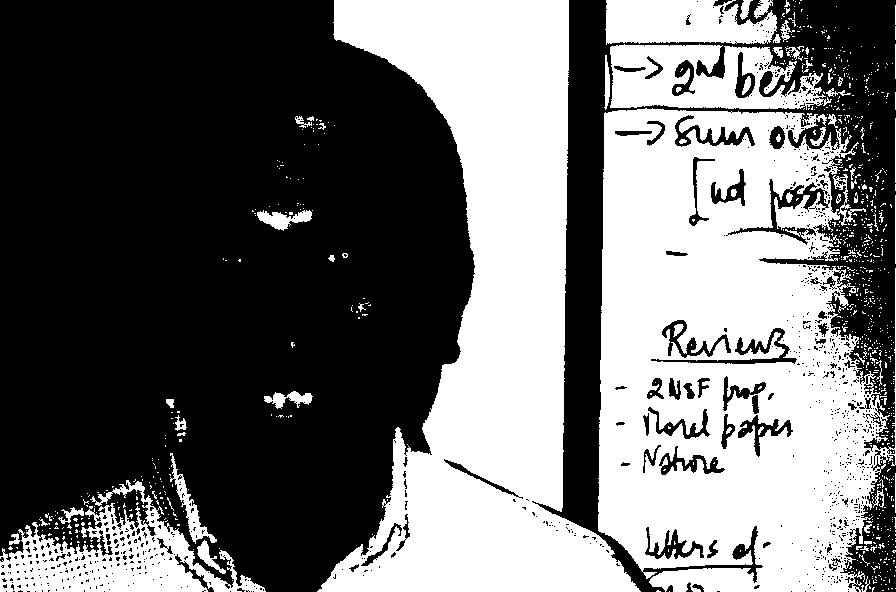 → 2nd best
→ Sum over
[not possible
Reviews
- 2 NSF prop.
- paper
- Nature
Letters of